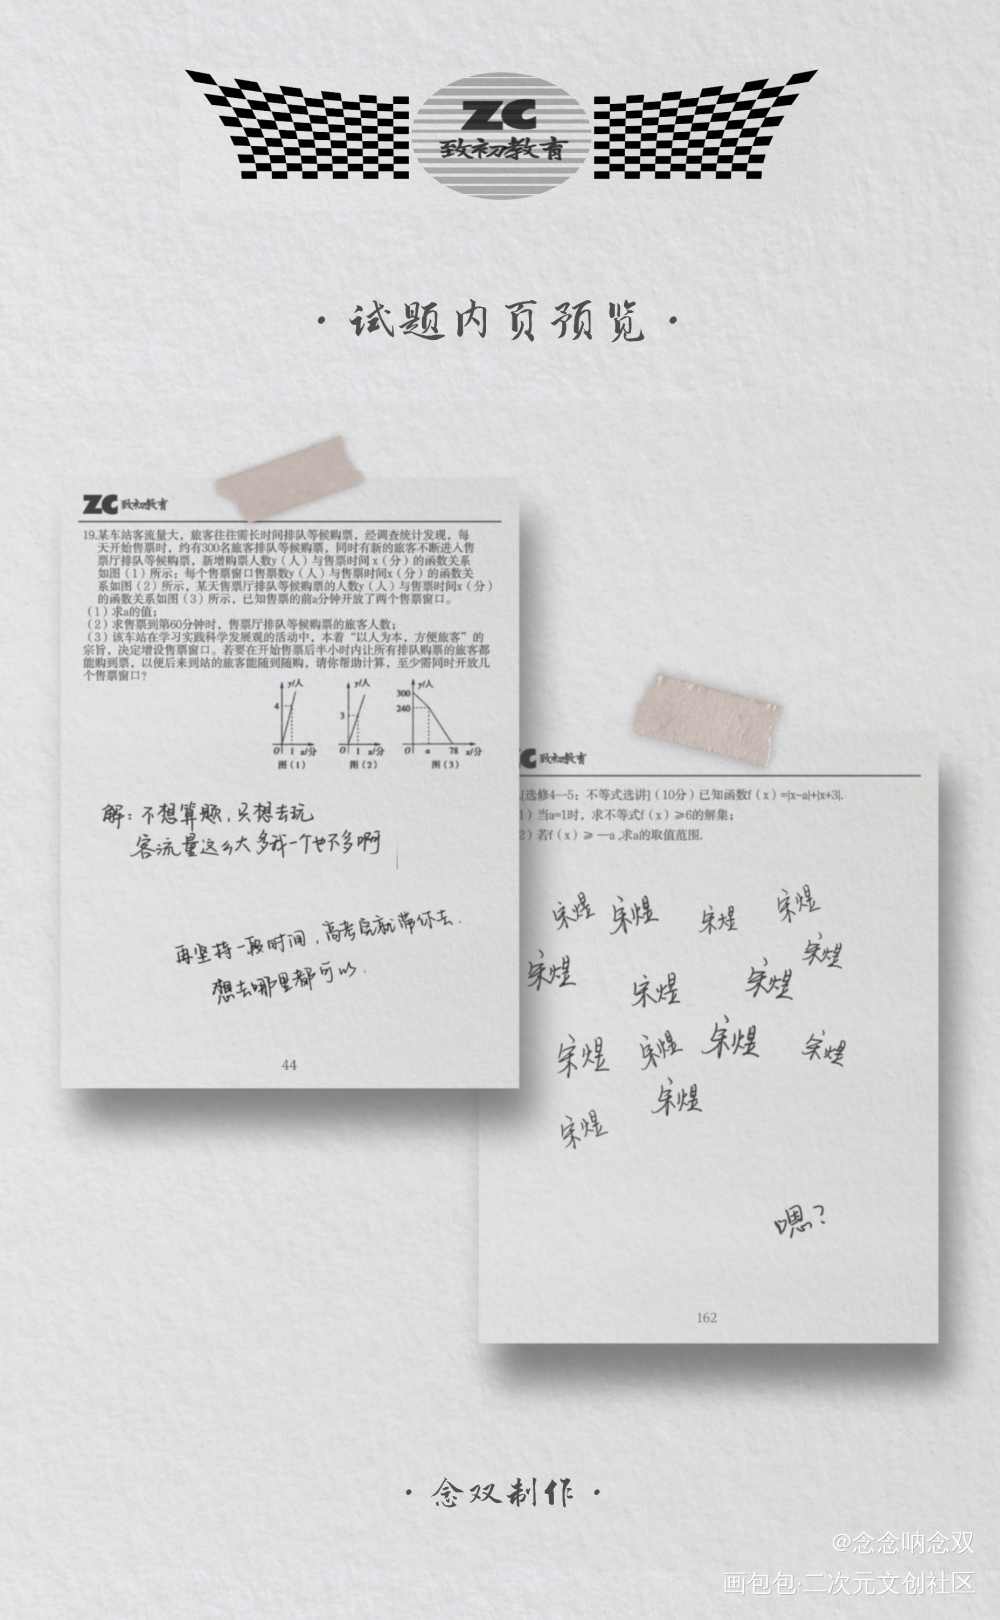 ZC
致初教育
·试题内页预览·
ZC 致初教育
19.某车站客流量大，旅客往往需长时间排队等候购票，经调查统计发现，每
天开始售票时，约有300名旅客排队等候购票，同时有新的旅客不断进入售
票厅排队等候购票，新增购票人数y（人）与售票时间x（分）的函数关系
如图（1）所示；每个售票窗口售票数y（人）与售票时间x（分）的函数关
系如图（2）所示，某天售票厅排队等候购票的人数y（人）与售票时间x（分）
的函数关系如图（3）所示，已知售票的前a分钟开放了两个售票窗口。
（1）求a的值；
（2）求售票到第60分钟时，售票厅排队等候购票的旅客人数；
（3）该车站在学习实践科学发展观的活动中，本着“以人为本，方便旅客”的
宗旨，决定增设售票窗口。若要在开始售票后半小时内让所有排队购票的旅客都
能购到票，以便后来到站的旅客能随到随购，请你帮助计算，至少需同时开放几
个售票窗口？
y/人 4 O 1 x/分
图（1）
y/人 3 O 1 x/分
图（2）
y/人 300 240 O a 78 x/分
图（3）
解：不想算题，只想去玩
客流量这么大多我一个也不多啊
再坚持一段时间，高考完就带你去.
想去哪里都可以.
44
C 致初教育
[选修4—5：不等式选讲]（10分）已知函数f（x）=|x-a|+|x+3|.
1）当a=1时，求不等式f（x）⩾6的解集；
2）若f（x）⩾ —a ,求a的取值范围.
宋煜 宋煜 宋煜 宋煜
宋煜
宋煜 宋煜 宋煜
宋煜 宋煜 宋煜 宋煜
宋煜
宋煜
嗯？
162
·念双制作·
@念念呐念双
画包包·二次元文创社区